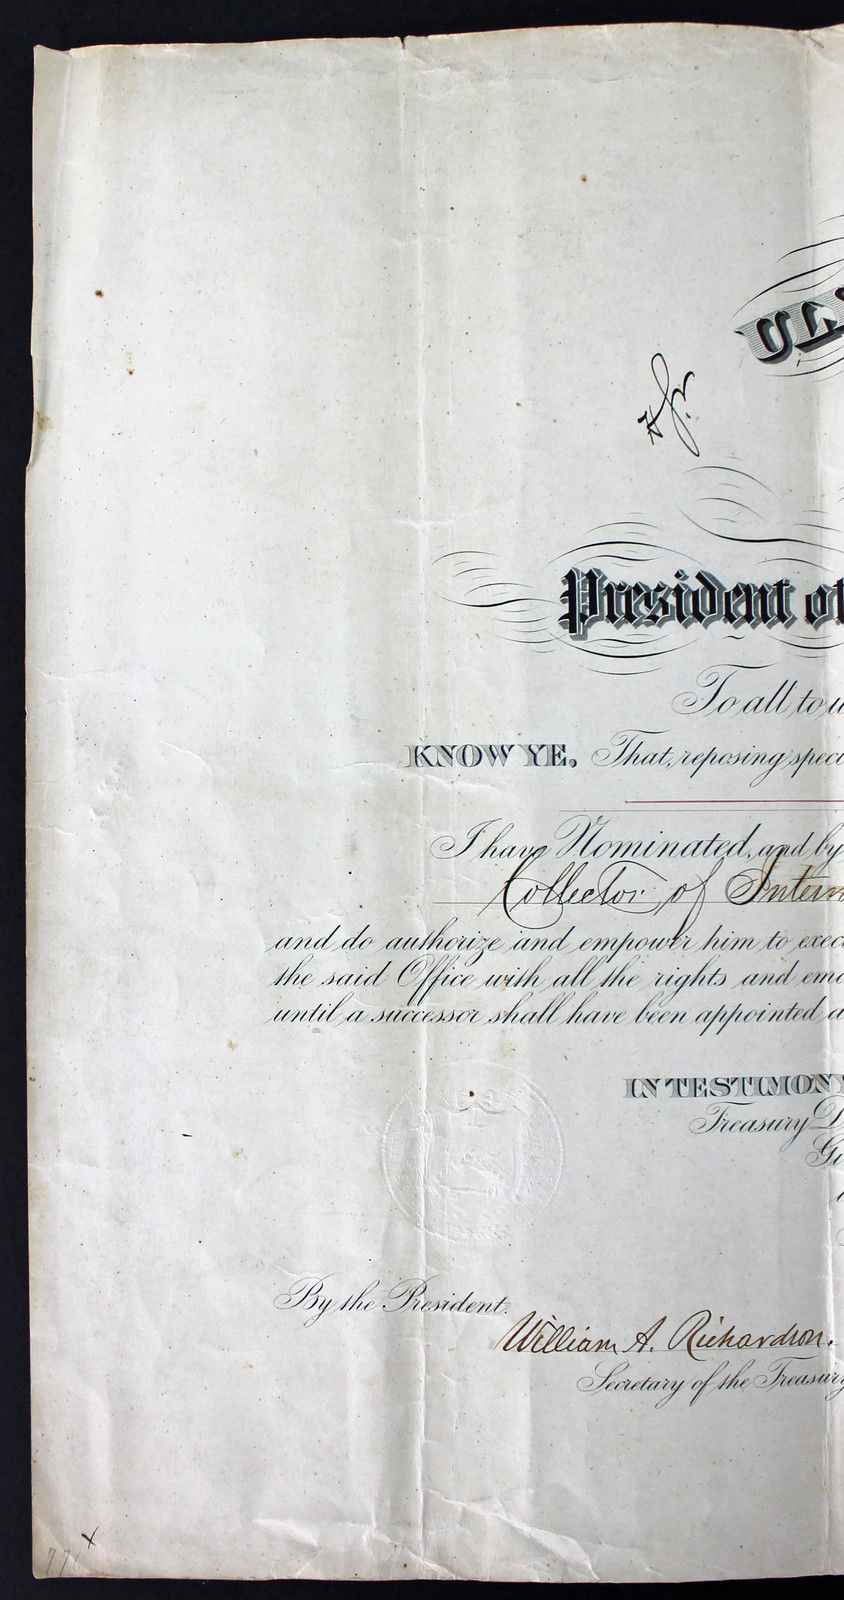 UL
President of
To all to
KNOW YE, That, reposing speci
I have Nominated, and by
Collector of Intern
and do authorize and empower him to exec
the said Office with all the rights and emo
until a successor shall have been appointed a
IN TESTIMONY
Treasury D
By the President.
William A. Richardson.
Secretary of the Treasury
x